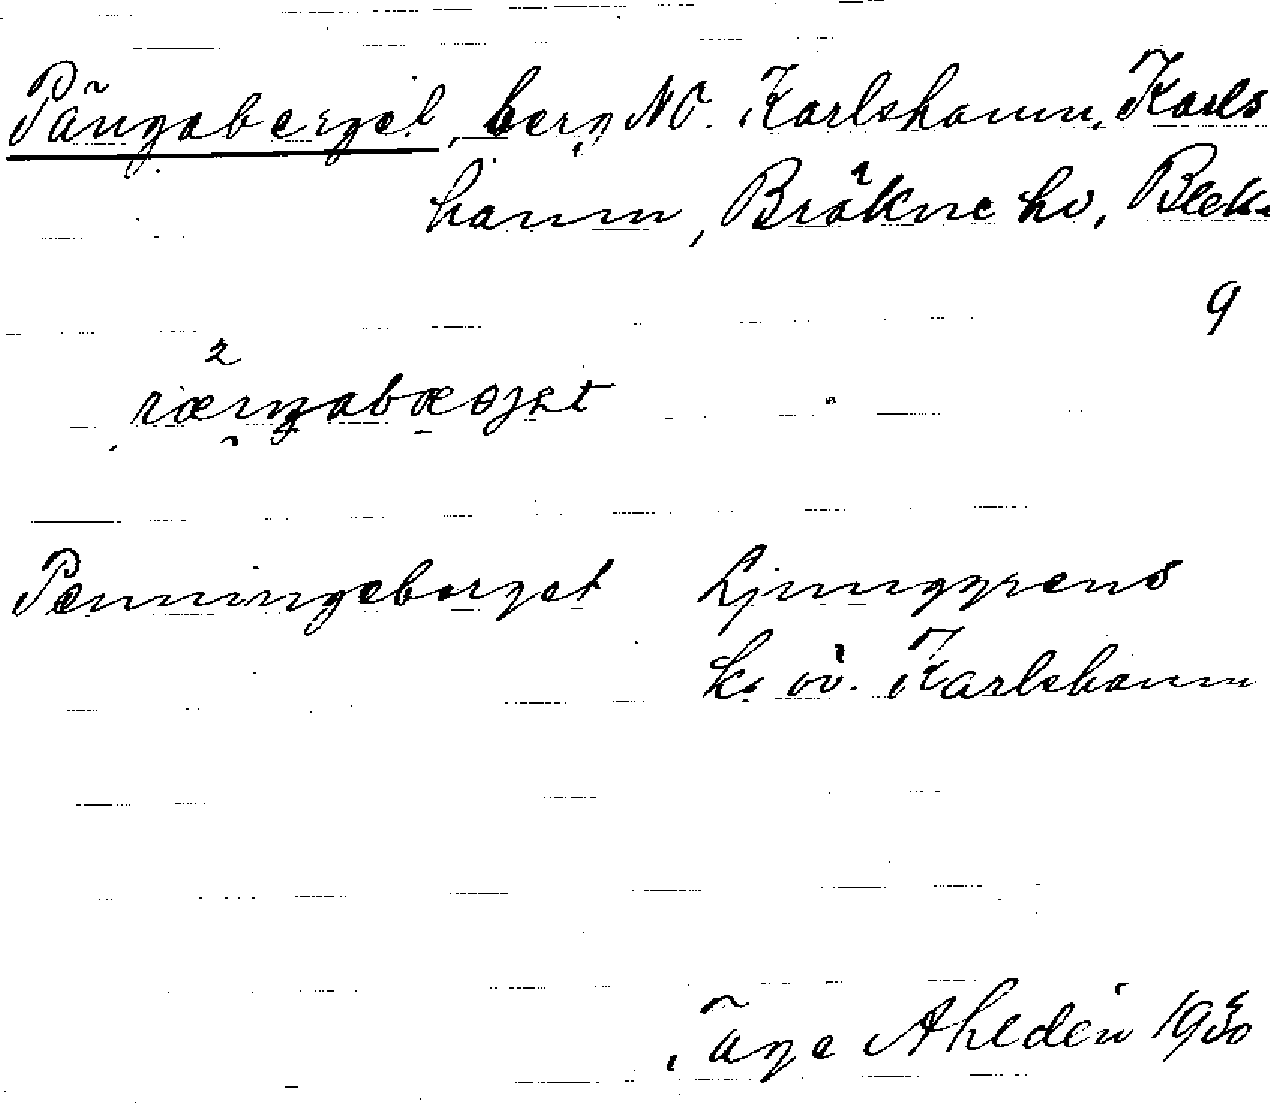 Pängaberget, berg NO. Karlshamn, Karls
hamn, Bräkne hd, Blek.
9
Penningeberget Ljunggrens
k. öv. Karlshamn
Tage Ahlden 1930